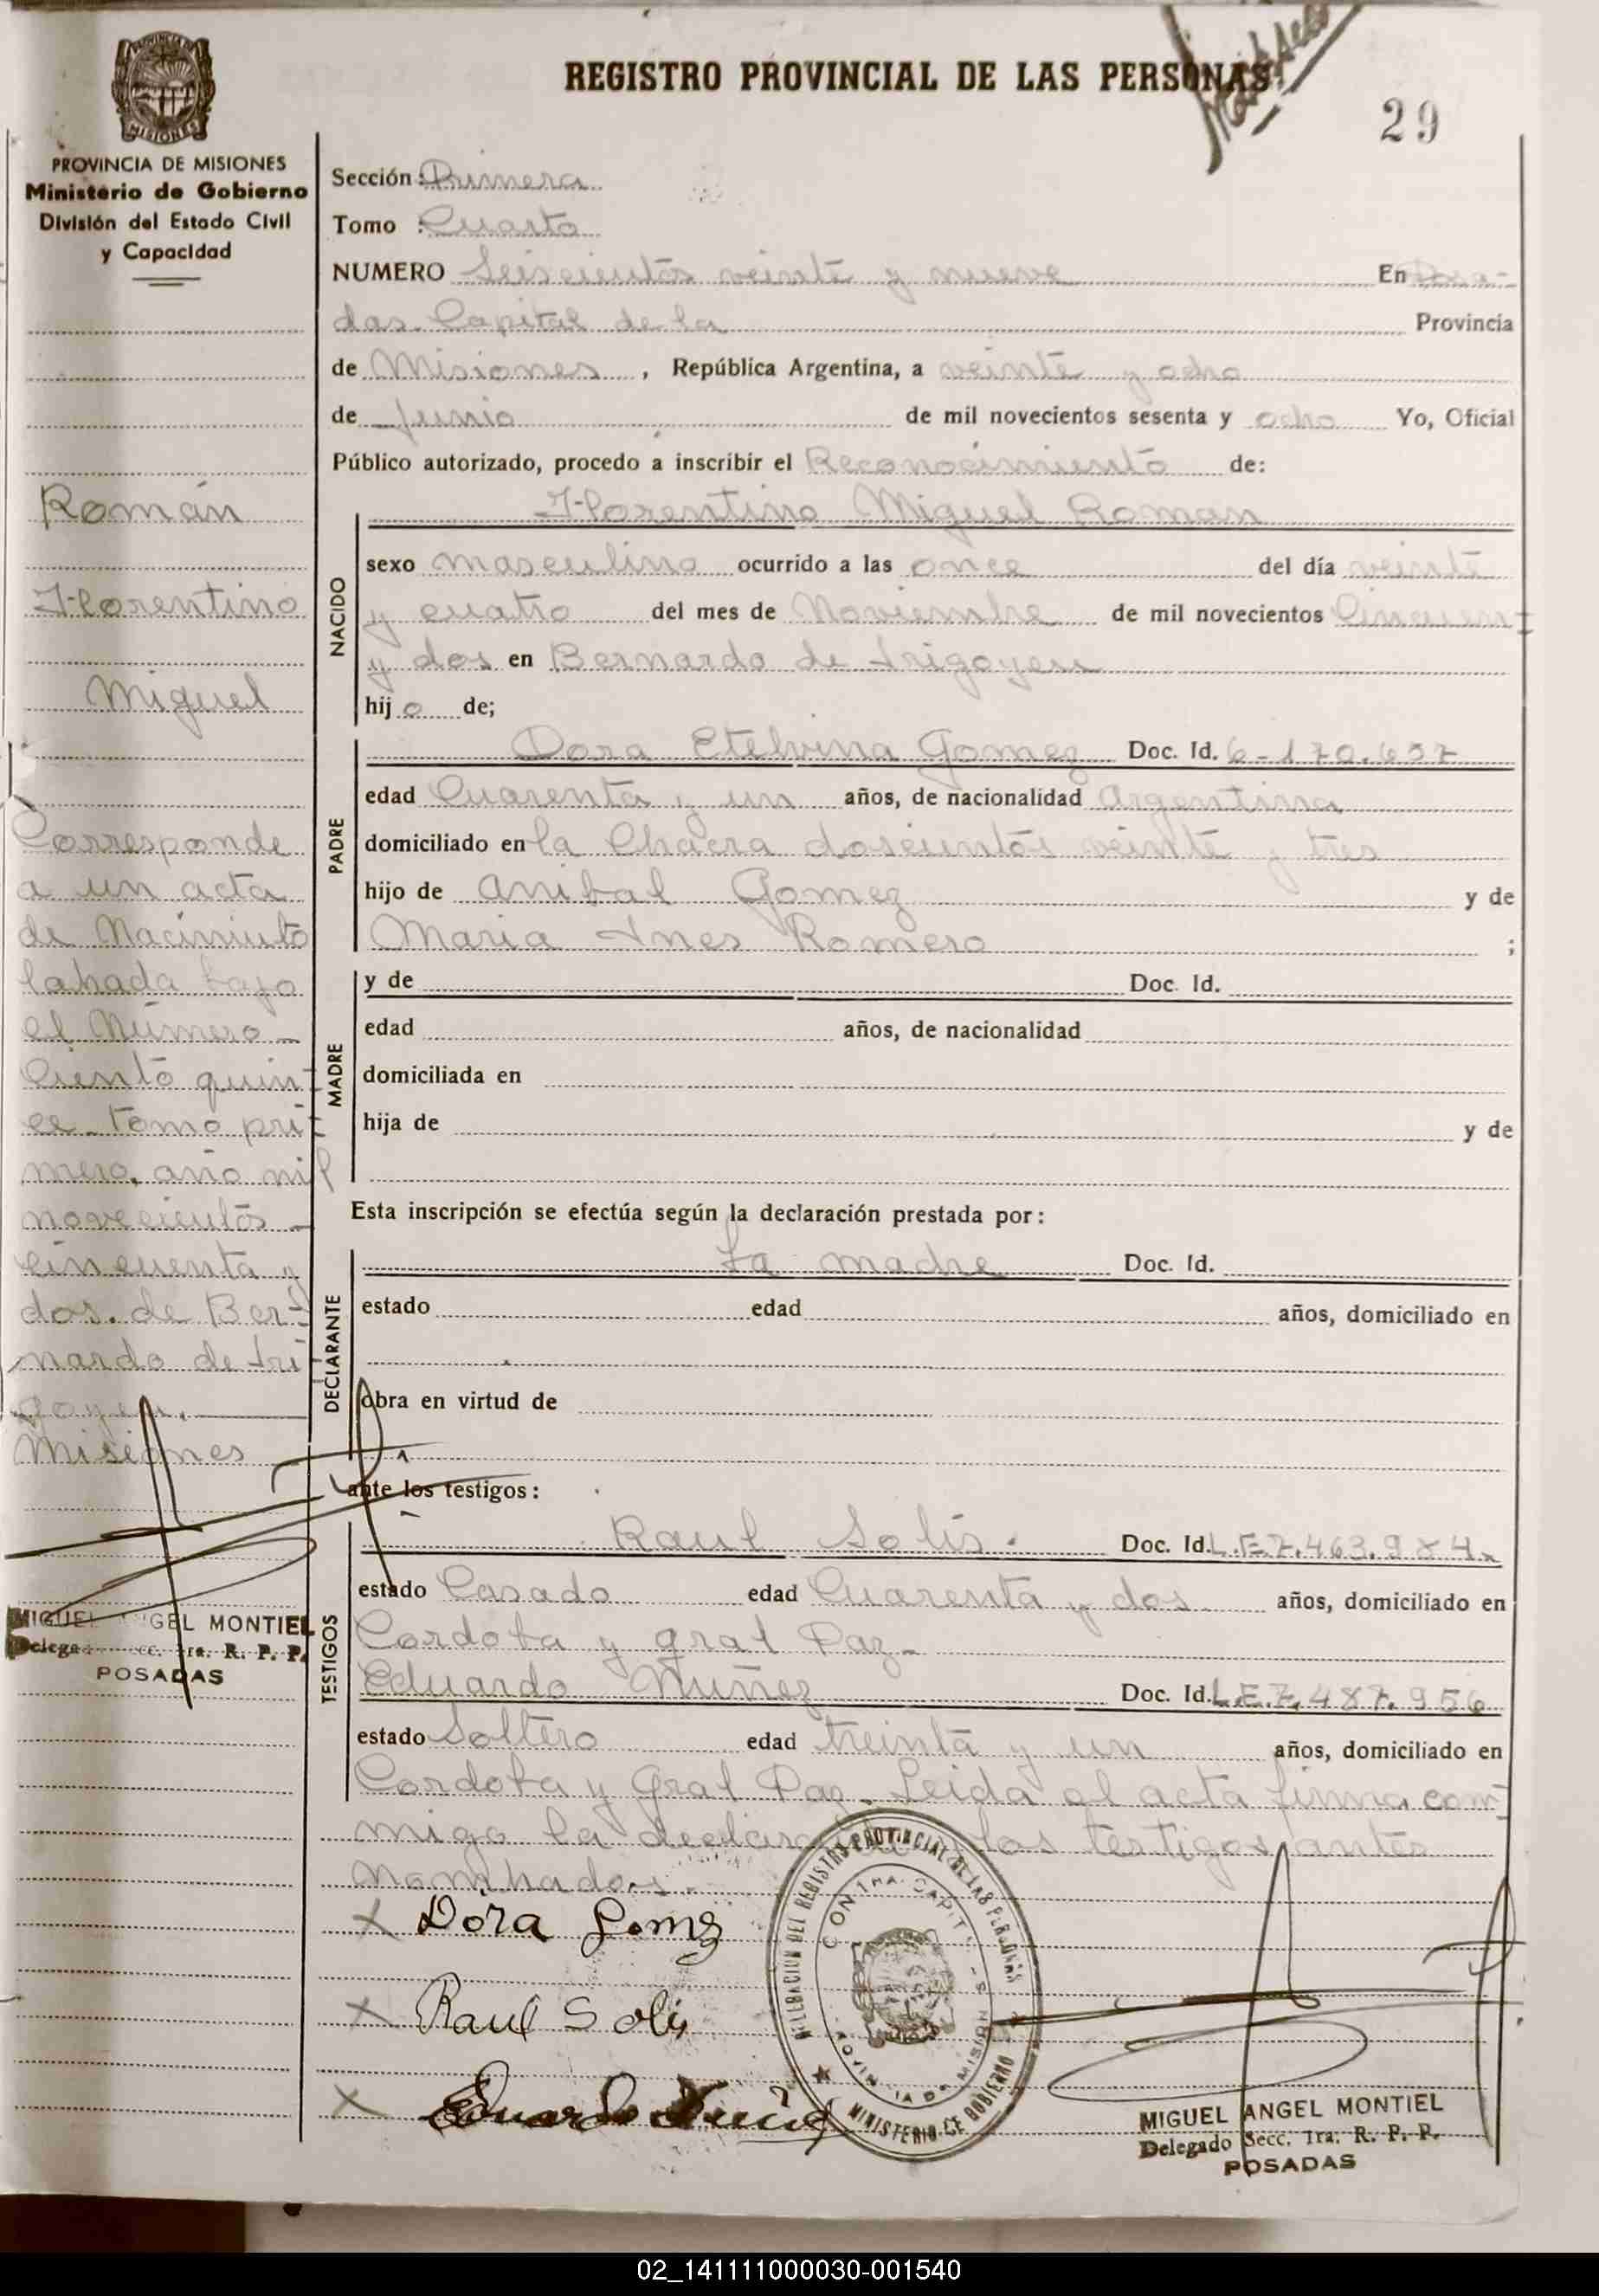 REGISTRO PROVINCIAL DE LAS PERSONAS
29
PROVINCIA DE MISIONES
Ministerio de Gobierno
División del Estado Civil
y Capacidad
Sección: Primera
Tomo : Cuarto
NUMERO Seiscientos veinte y nueve En Posa-
das. Capital de la Provincia
de Misiones, República Argentina, a veinte y ocho
de Junio de mil novecientos sesenta y ocho Yo, Oficial
Público autorizado, procedo a inscribir el Reconocimiento de:
Román
Florentino
Miguel
Corresponde
a un acta
de Nacimiento
labrada bajo
el Número
Ciento quin-
ce tomo pri-
mero, año mil
novecientos
cincuenta y
dos. de Ber-
nardo de Iri
goyen.
Misiones
MIGUEL ANGEL MONTIEL
Delegado Secc. 1ra. R. P. P.
POSADAS
NACIDO
Florentino Miguel Roman
sexo masculino ocurrido a las once del día veinte
y cuatro del mes de Noviembre de mil novecientos Cincuen-
y dos en Bernardo de Irigoyen
hijo de;
PADRE
Dora Etelvina Gomez Doc. Id. 6-170.657
edad Cuarenta y un años, de nacionalidad Argentina
domiciliado en la Chacra doscientos veinte y tres
hijo de Anibal Gomez y de
Maria Ines Romero ;
MADRE
y de Doc. Id.
edad años, de nacionalidad
domiciliada en
hija de y de
Esta inscripción se efectúa según la declaración prestada por:
DECLARANTE
La madre Doc. Id.
estado edad años, domiciliado en
obra en virtud de
ante los testigos:
TESTIGOS
Raul Solis. Doc. Id. L.E.7.463.984.
estado Casado edad Cuarenta y dos años, domiciliado en
Cordoba y gral Paz-
Eduardo Nuñez Doc. Id. L.E.7.487.956
estado Soltero edad treinta y un años, domiciliado en
Cordoba y Gral Paz. Leida el acta firma con-
migo la los testigos antes
nombrados.-
x Dora Gomez
x Raul Solis
x Eduardo Nuñez
DELEGACION DEL REGISTRO PROVINCIAL DE LAS PERSONAS
MINISTERIO DE GOBIERNO
MIGUEL ANGEL MONTIEL
Delegado Secc. 1ra. R. P. P.
POSADAS
02_141111000030-001540